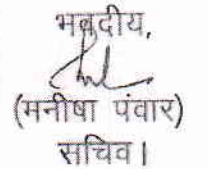 भवदीय,
(मनीषा पंवार)
सचिव।